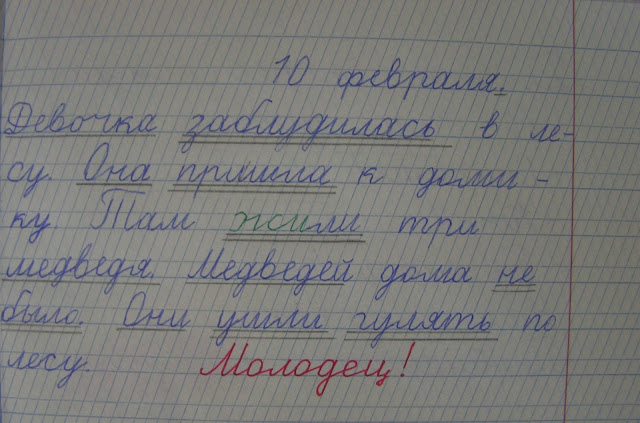 10 февраля.
Девочка заблудилась в ле-
су. Она пришла к доми-
ку. Там жили три
медведя. Медведей дома не
было. Они ушли гулять по
лесу. Молодец!